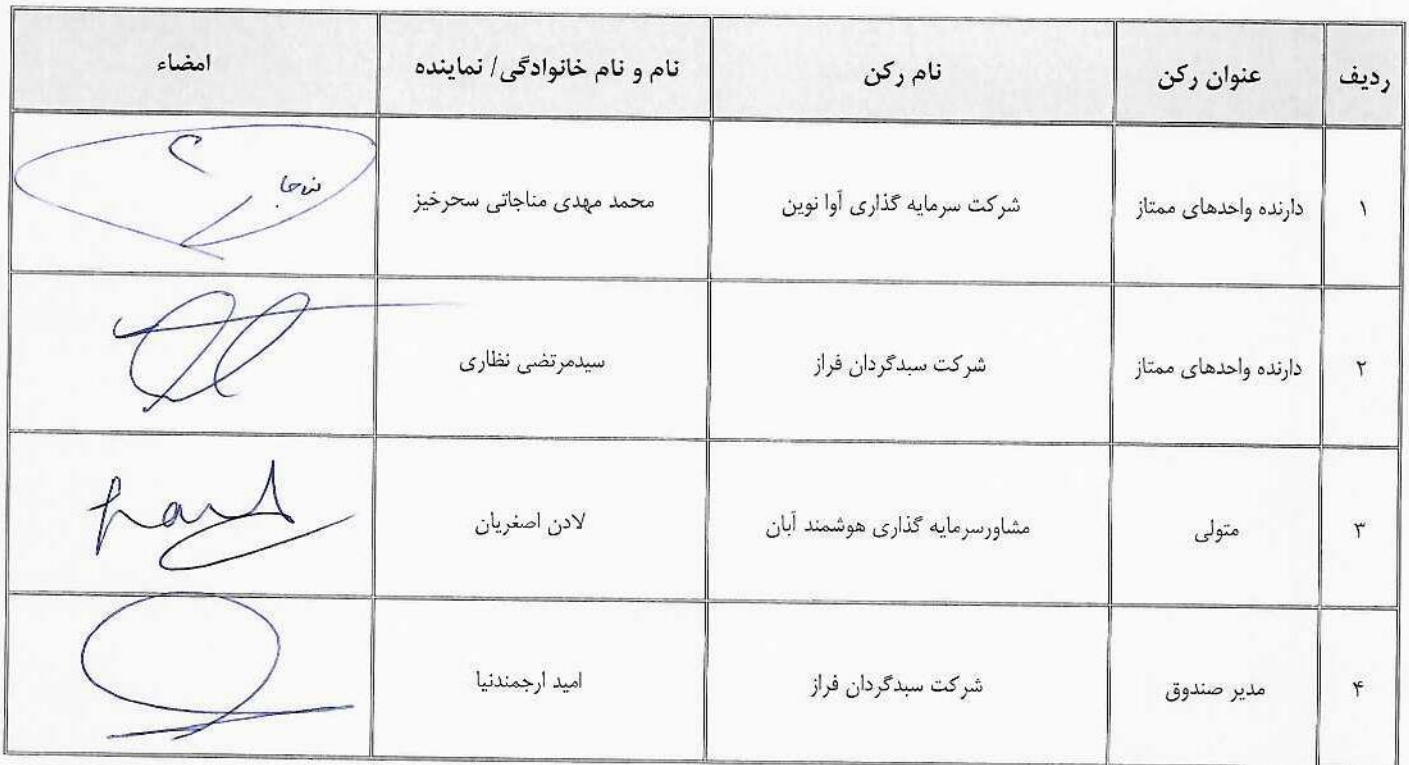 ردیف عنوان رکن نام رکن نام و نام خانوادگی/ نماینده امضاء
۱ دارنده واحدهای ممتاز شرکت سرمایه گذاری آوا نوین محمد مهدی مناجاتی سحرخیز
۲ دارنده واحدهای ممتاز شرکت سبدگردان فراز سیدمرتضی نظاری
۳ متولی مشاورسرمایه گذاری هوشمند آبان لادن اصغریان
۴ مدیر صندوق شرکت سبدگردان فراز امید ارجمندنیا